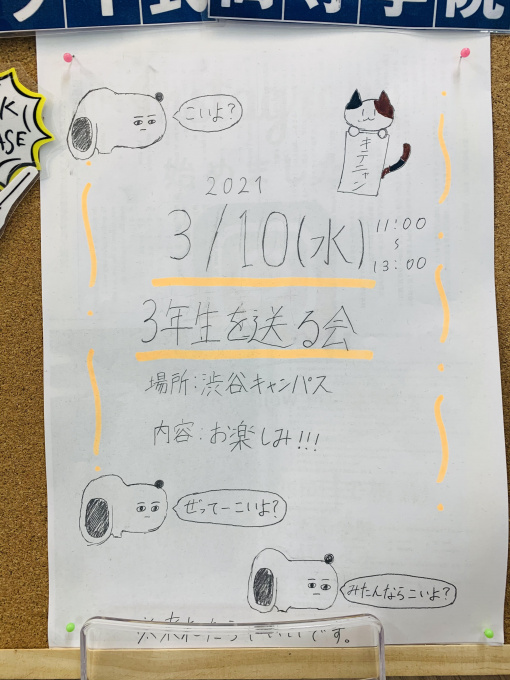 高等学院
K
ASE
こいよ?
オケニャン
2021
3/10(水)
11:00
〜
13:00
3年生を送る会
場所:渋谷キャンパス
内容:お楽しみ!!!
ぜってーこいよ?
みたんならこいよ?
いいです。